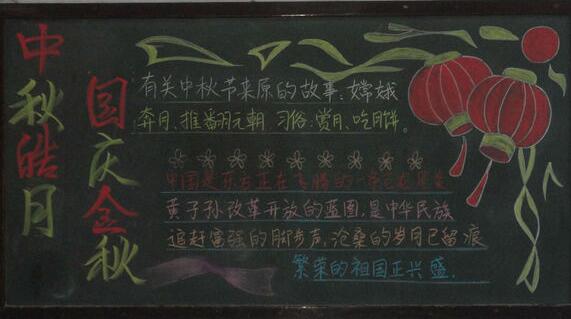 中秋皓月
国庆金秋
有关中秋节来原的故事:嫦娥
奔月、推翻元朝 习俗:赏月、吃月饼。
中国是东方正在飞腾的
黄子孙改革开放的蓝图,是中华民族
追赶富强的脚步声,沧桑的岁月已留痕
繁荣的祖国正兴盛.